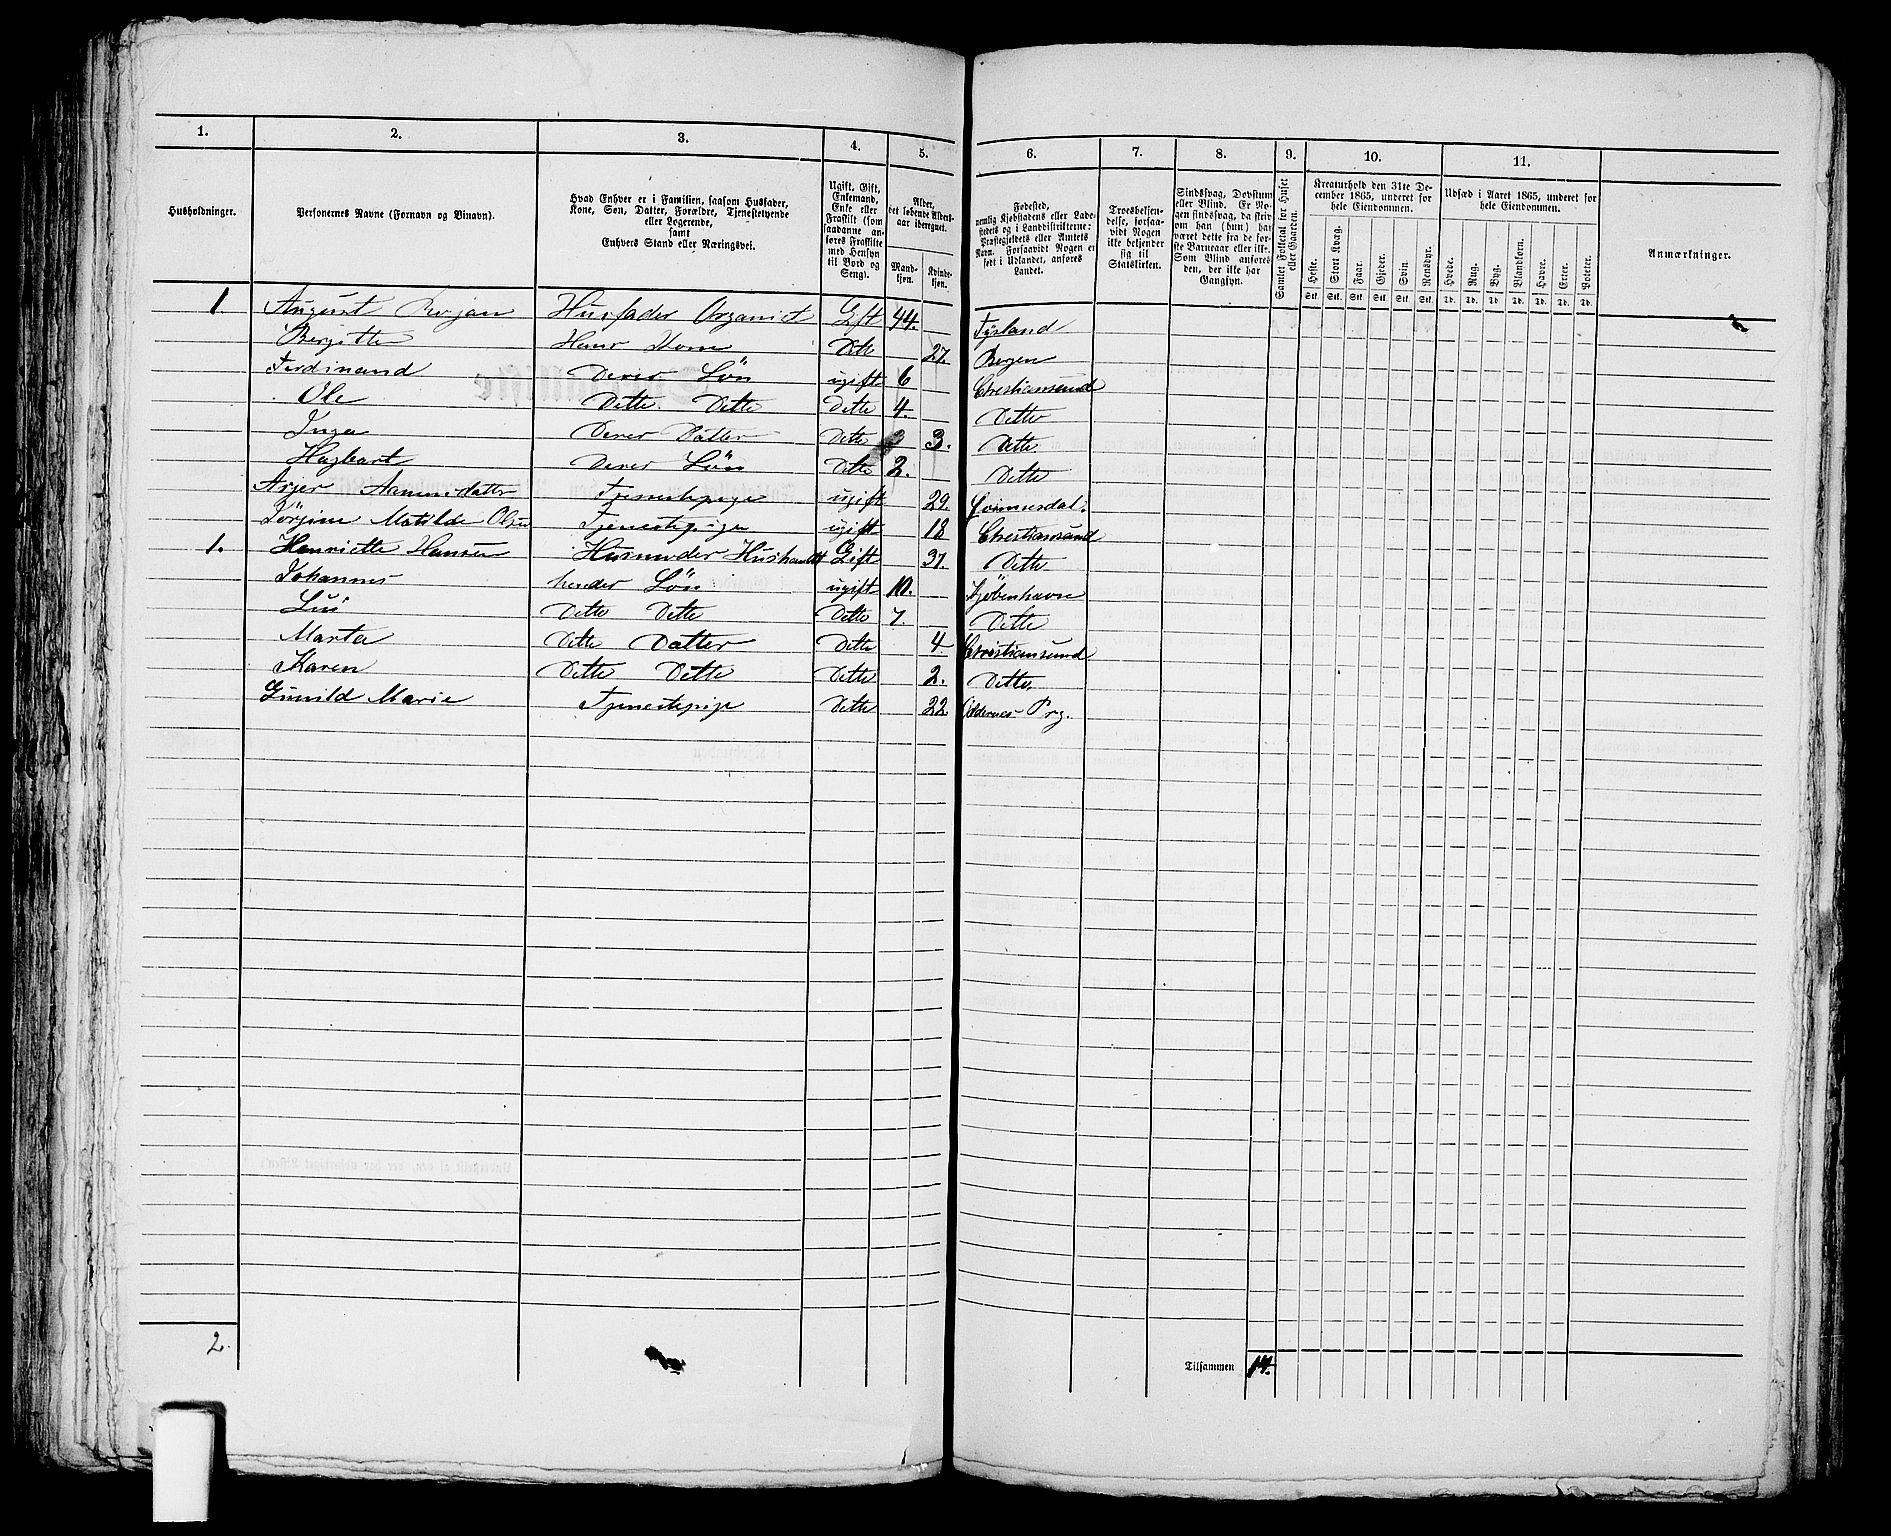 1. 2. 3. 4. 5. 6. 7. 8. 9. 10. 11.
Husholdninger.
Personernes Navne (Fornavn og Binavn).
Hvad Enhver er i Familien, saasom Husfader,
Kone, Søn, Datter, Forældre, Tjenestetyende
eller Logerende,
samt
Enhvers Stand eller Næringsvei.
Ugift, Gift,
Enkemand,
Enke eller
Fraskilt (som
saadanne an-
føres Fraskilte
med Hensyn
til Bord og
Seng).
Alder,
det løbende Alders-
aar iberegnet.
Mand-
kjøn.
Kvinde-
kjøn.
Fødested,
nemlig Kjøbstadens eller Lade-
stedets og i Landdistrikterne:
Præstegjeldets eller Amtets
Navn. Forsaavidt Nogen er
født i Udlandet, anføres
Landet.
Troesbekjen-
delse, forsaa-
vidt Nogen
ikke bekjender
sig til
Statskirken.
Sindssvag, Døvstum
eller Blind. Er No-
gen sindssvag, da skriv
om han (hun) har
været dette fra de før-
ste Barneaar eller ikke.
Som Blind anføres
den, der ikke har
Gangsyn.
Samlet Folketal for Huset
eller Gaarden.
Kreaturhold den 31te De-
cember 1865, underet for
hele Eiendommen.
Heste. Stort Kvæg. Faar. Gjeder. Svin. Rensdyr.
Stk. Stk. Stk. Stk. Stk. Stk.
Udsæd i Aaret 1865, underet for
hele Eiendommen.
Hvede. Rug. Byg. Blandkorn. Havre. Erter. Poteter.
Td. Td. Td. Td. Td. Td. Td.
Anmærkninger.
1 August Husfader Organist Gift 44. Tydsland
Bergitte Hans Kone Dette 27. Bergen
Ferdinand Deres Søn ugift 6 Christiansund
Ole Dette Dette Dette 4. Dette
Inga Deres Datter Dette 3. Dette
Hagbart Deres Søn Dette 2. Dette
Asjer Tjenestepige ugift 29.
Jørgine Matilde Olsen Tjenestepige ugift 18 Christiansund
1. Henriette Hansen Husmoder Gift 37. Dette
Johannes hendes Søn ugift 10. Kjøbenhavn
Dette Dette Dette 7. Dette
Marta Dette Datter Dette 4. Christiansund
Karen Dette Dette Dette 2. Dette
Gunild Marie Tjenestepige Dette 22 Oddernes Prg.
2.
Tilsammen 14.